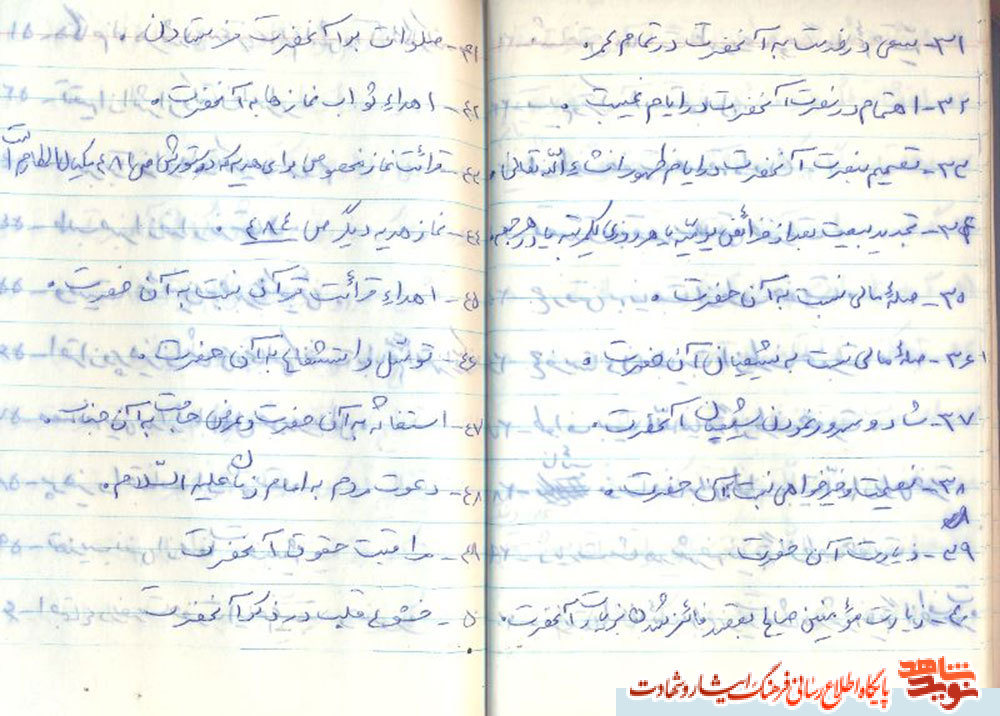 ۳۱- سعی در خدمت به آنحضرت در تمام عمر.
۳۲- اهتمام در نصرت آنحضرت در ایام غیبت.
۳۳- تصمیم بنصرت آنحضرت در ایام ظهور انشاءالله تعالی.
۳۴- تجدید بیعت بعد از فرائض یومیه یا هر روزی یکمرتبه یا در هر جمعه.
۳۵- صلهٔ مالی نسبت به آن حضرت.
۳۶- صلهٔ مالی نسبت به شیعیان آن حضرت.
۳۷- شاد و مسرور نمودن شیعیان آنحضرت.
۳۸- نصیحت و خیرخواهی نسبت به آن حضرت.
۳۹- زیارت آن حضرت
۴۰- زیارت مؤمنین صالح بقصد فائز شدن بزیارت آنحضرت.
۴۱- صلوات بر آنحضرت فرستادن.
۴۲- اهداء ثواب نمازها به آنحضرت.
۴۳- قرائت نماز مخصوصی برای هدیه که دستورش ص ۴۸۱
۴۴- نماز هدیه دیگر ص ۴۸۴.
۴۵- اهداء قرائت قرآن نسبت به آن حضرت.
۴۶- توسّل و استشفاع به آن حضرت.
۴۷- استغاثه به آن حضرت و عرض حاجت به آن جناب.
۴۸- دعوت مردم به امام زمان علیه السّلام.
۴۹- مراقبت حقوق آنحضرت
۵۰- خشوع قلب در ذکر آنحضرت
نوید شاهد
پایگاه اطلاع رسانی فرهنگ ایثار و شهادت